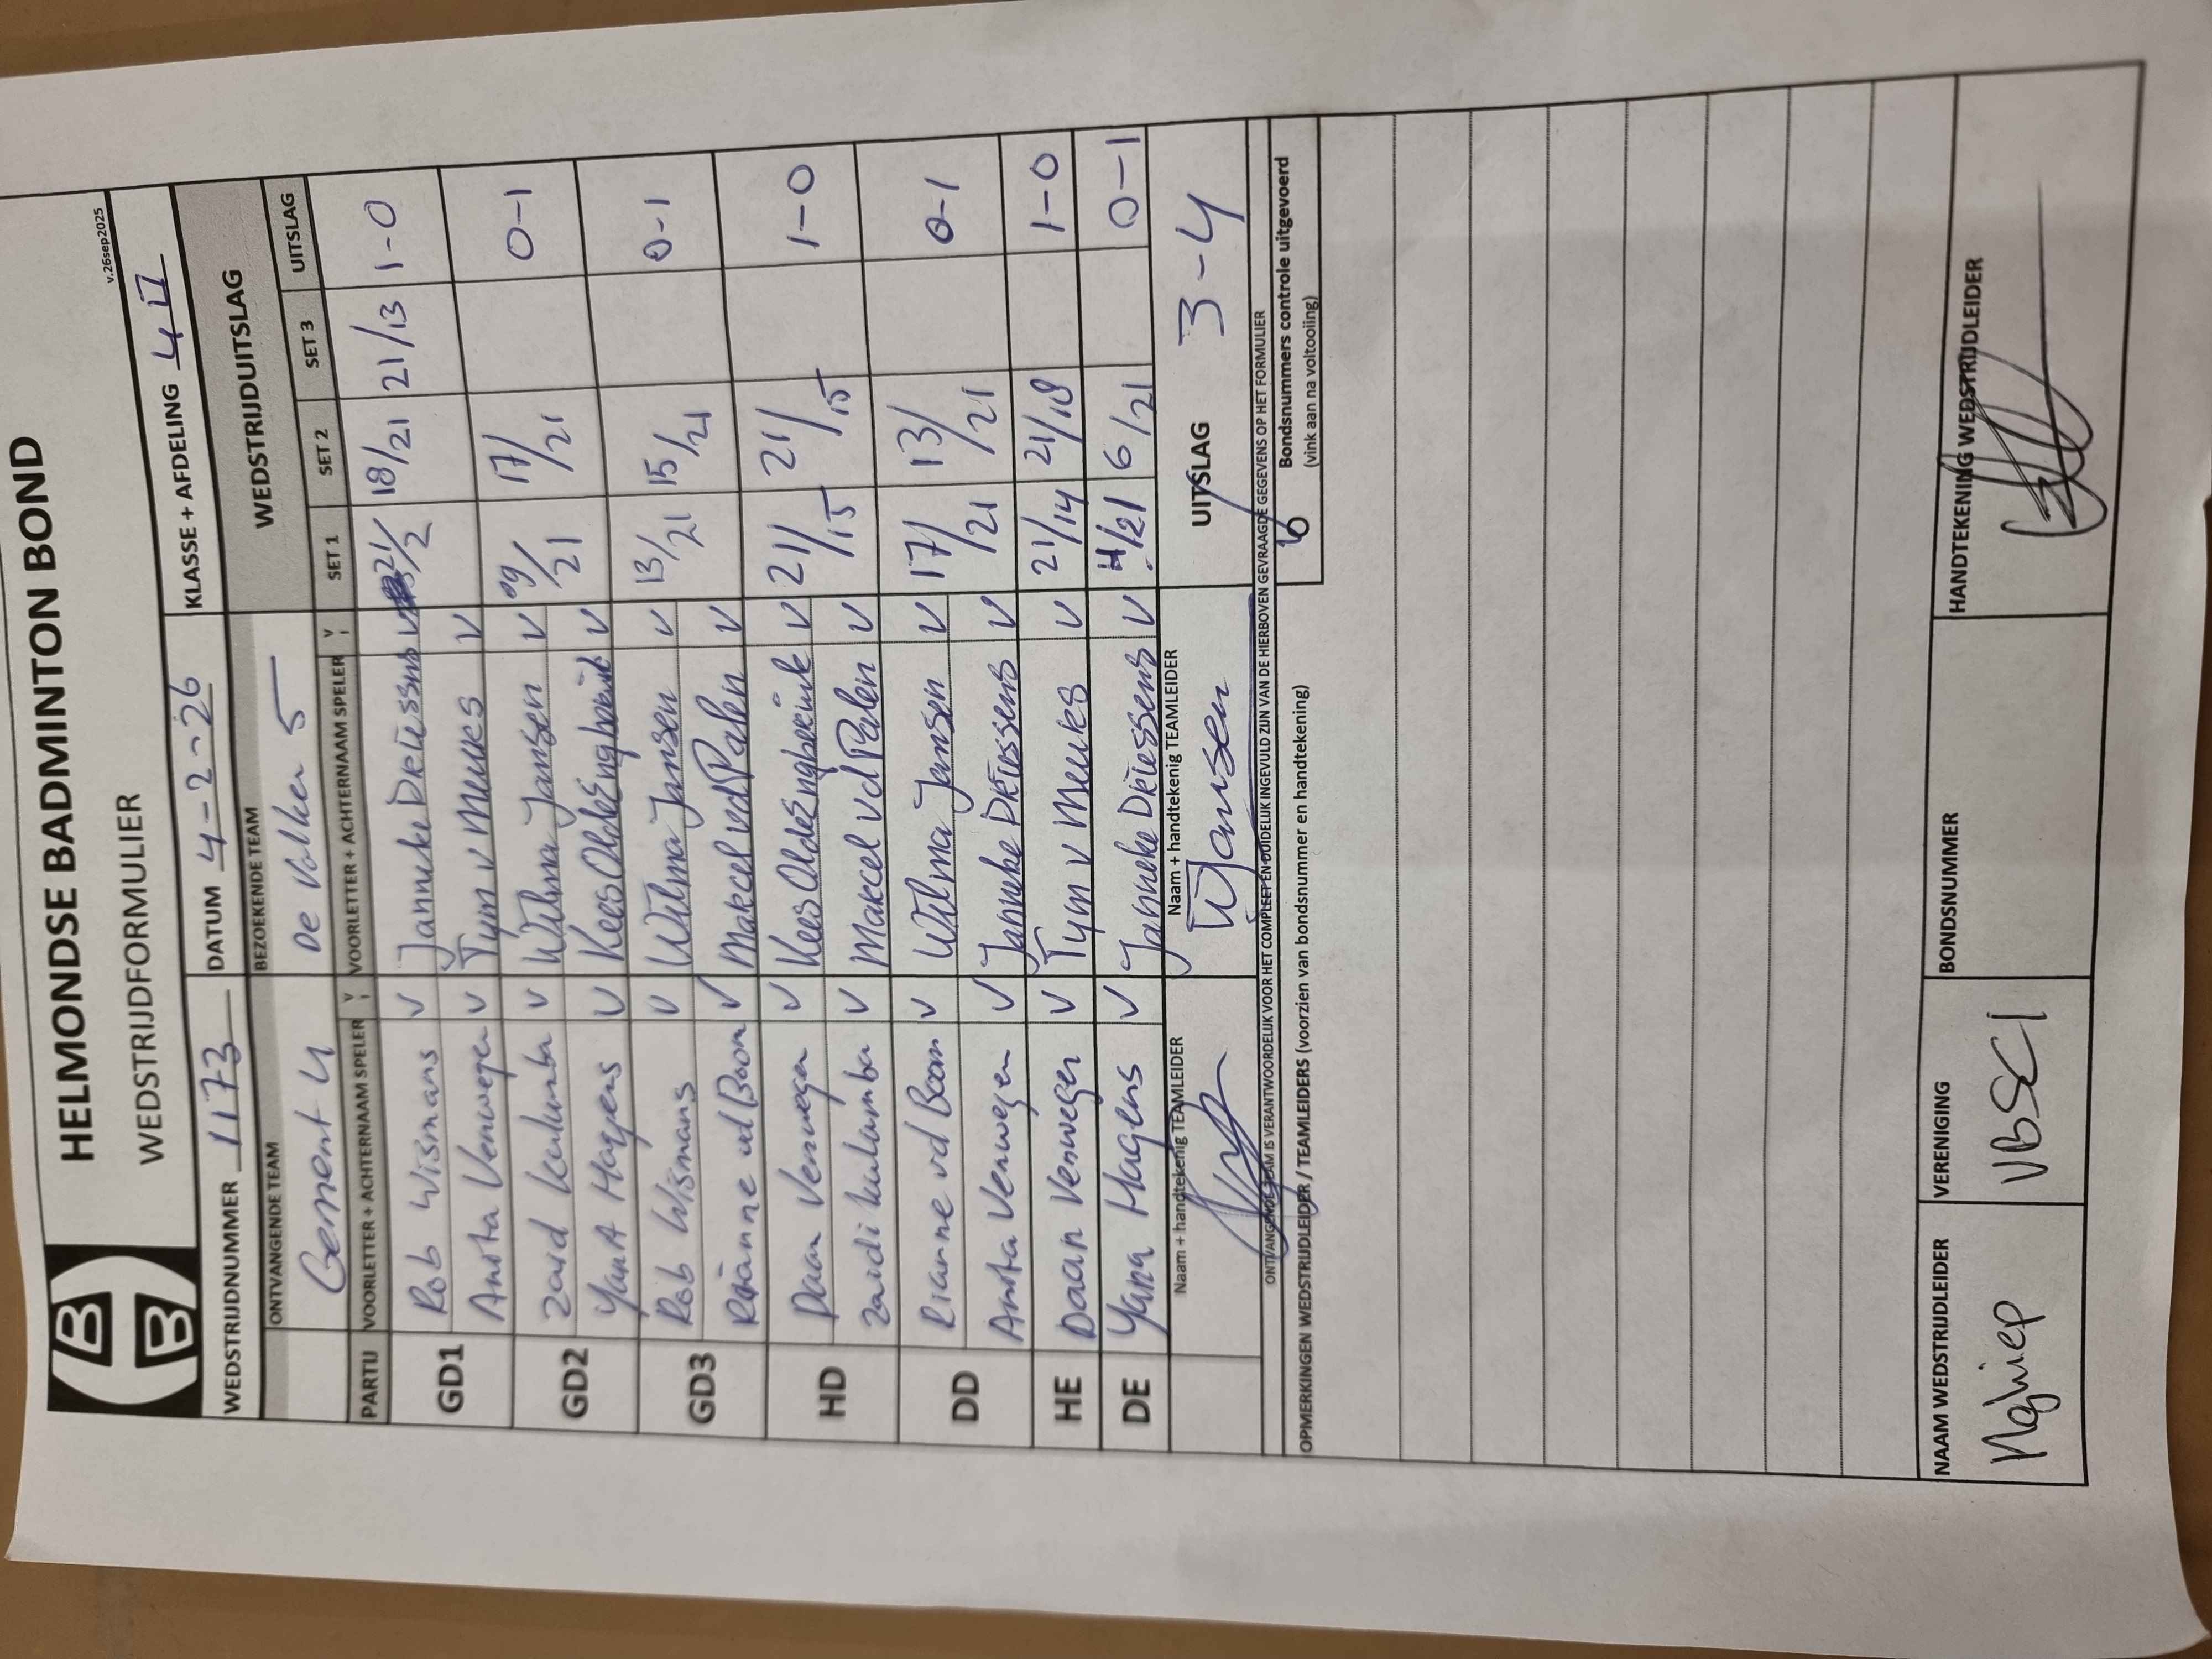 HELMONDSE BADMINTON BOND
WEDSTRIJDFORMULIER
v.26sep2025
WEDSTRIJDNUMMER 1173 DATUM 4-2-26 KLASSE + AFDELING 4 II
ONTVANGENDE TEAM BEZOEKENDE TEAM WEDSTRIJDUITSLAG
Gement 4 De Volker 5
PARTIJ VOORLETTER + ACHTERNAAM SPELER V VOORLETTER + ACHTERNAAM SPELER V SET 1 SET 2 SET 3 UITSLAG
GD1 Rob Wismans V Janneke Driessens V 21/2 18/21 21/13 1-0
Anita Verwegen V Tym v Meuks V
GD2 Zaid Kulumba V Wilma Jansen V 09/21 17/21 0-1
Yana Hagens V Kees Olde Engberink V
GD3 Rob Wismans V Wilma Jansen V 13/21 15/21 0-1
Rianne vd Boom V Marcel vd Palen V
HD Daan Verwegen V Kees Olde Engberink V 21/15 21/15 1-0
Zaidi Kulumba V Marcel vd Palen V
DD Rianne vd Boom V Wilma Jansen V 17/21 13/21 0-1
Anita Verwegen V Janneke Driessens V
HE Daan Verwegen V Tym v Meuks V 21/14 21/18 1-0
DE Yana Hagens V Janneke Driessens V 4/21 6/21 0-1
Naam + handtekenig TEAMLEIDER Naam + handtekenig TEAMLEIDER UITSLAG 3-4
WJansen
ONTVANGENDE TEAM IS VERANTWOORDELIJK VOOR HET COMPLEET EN DUIDELIJK INGEVULD ZIJN VAN DE HIERBOVEN GEVRAAGDE GEGEVENS OP HET FORMULIER
OPMERKINGEN WEDSTRIJDLEIDER / TEAMLEIDERS (voorzien van bondsnummer en handtekening)
Bondsnummers controle uitgevoerd
(vink aan na voltooiing)
NAAM WEDSTRIJDLEIDER VERENIGING BONDSNUMMER HANDTEKENING WEDSTRIJDLEIDER
MGhiep VBSC1